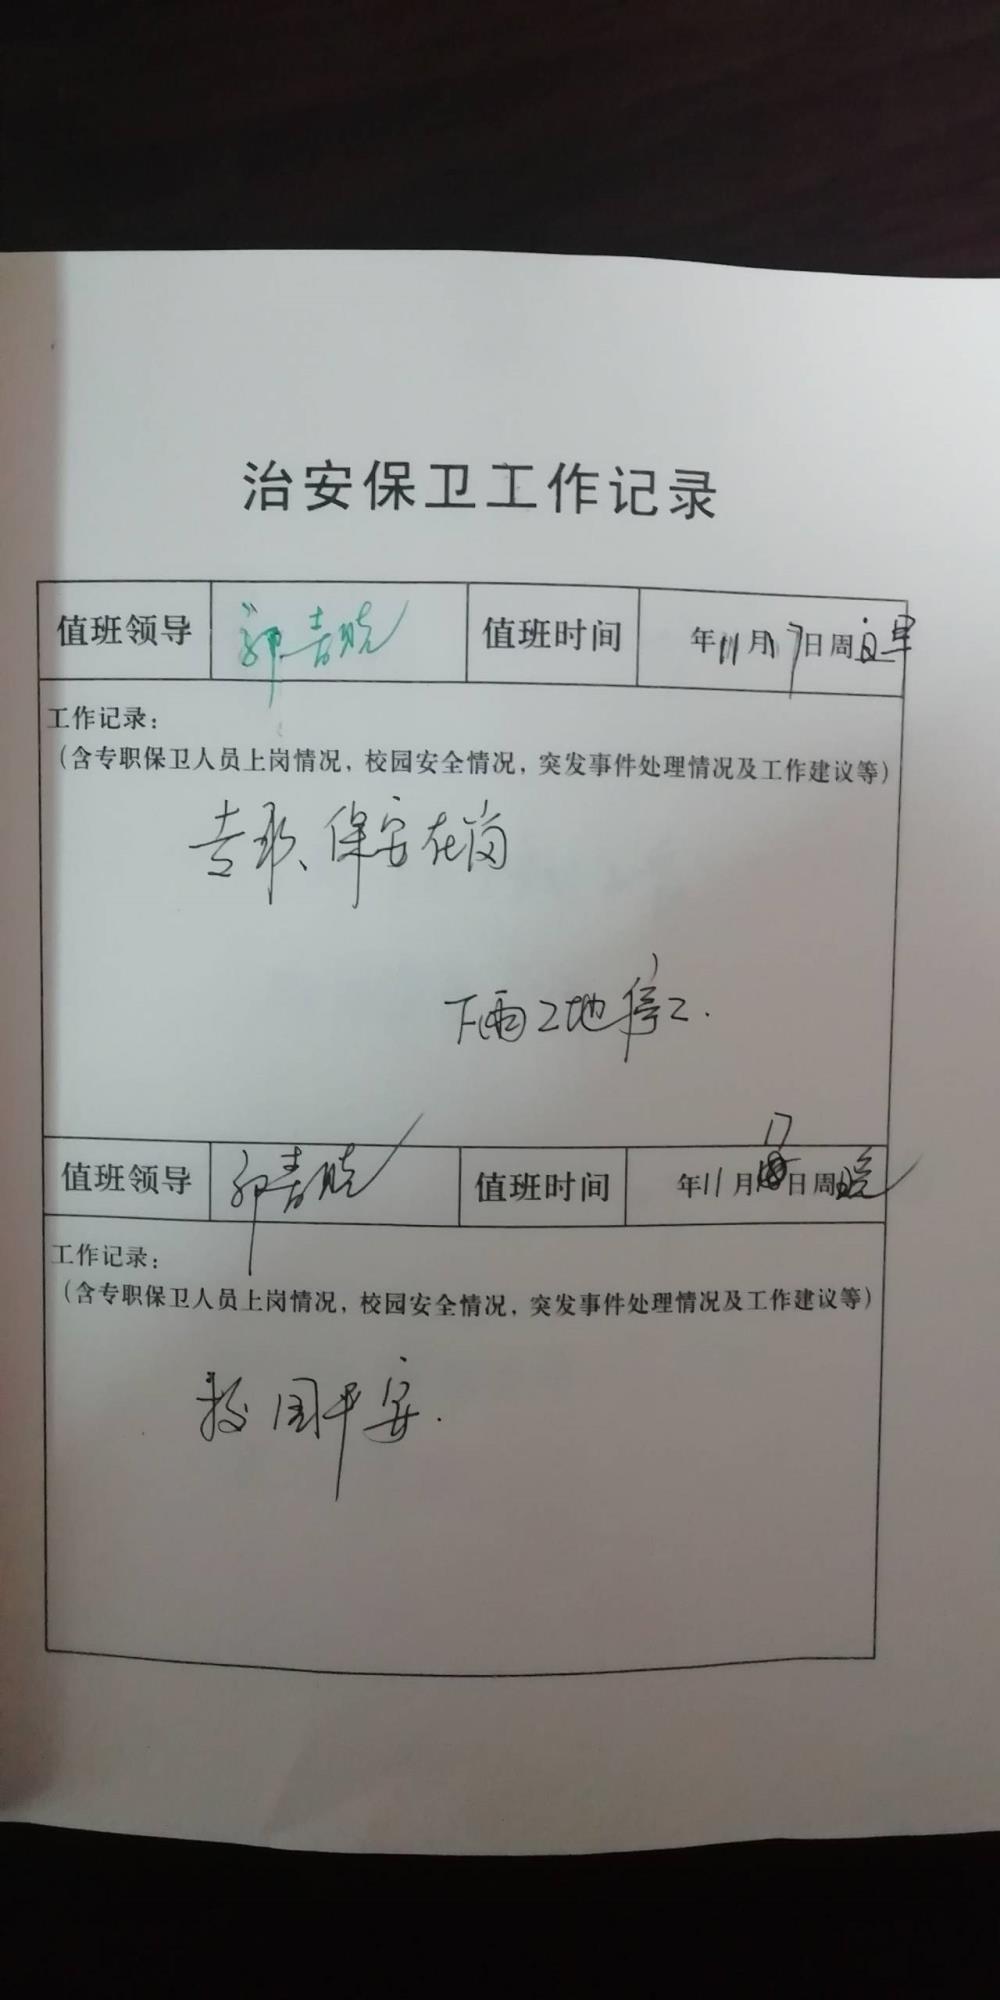 治安保卫工作记录
值班领导 郭春晓 值班时间 年11月17日周 早
工作记录：
（含专职保卫人员上岗情况，校园安全情况，突发事件处理情况及工作建议等）
专职、保安在岗
下雨工地停工.
值班领导 郭春晓 值班时间 年11月17日周晚
工作记录：
（含专职保卫人员上岗情况，校园安全情况，突发事件处理情况及工作建议等）
校园平安.